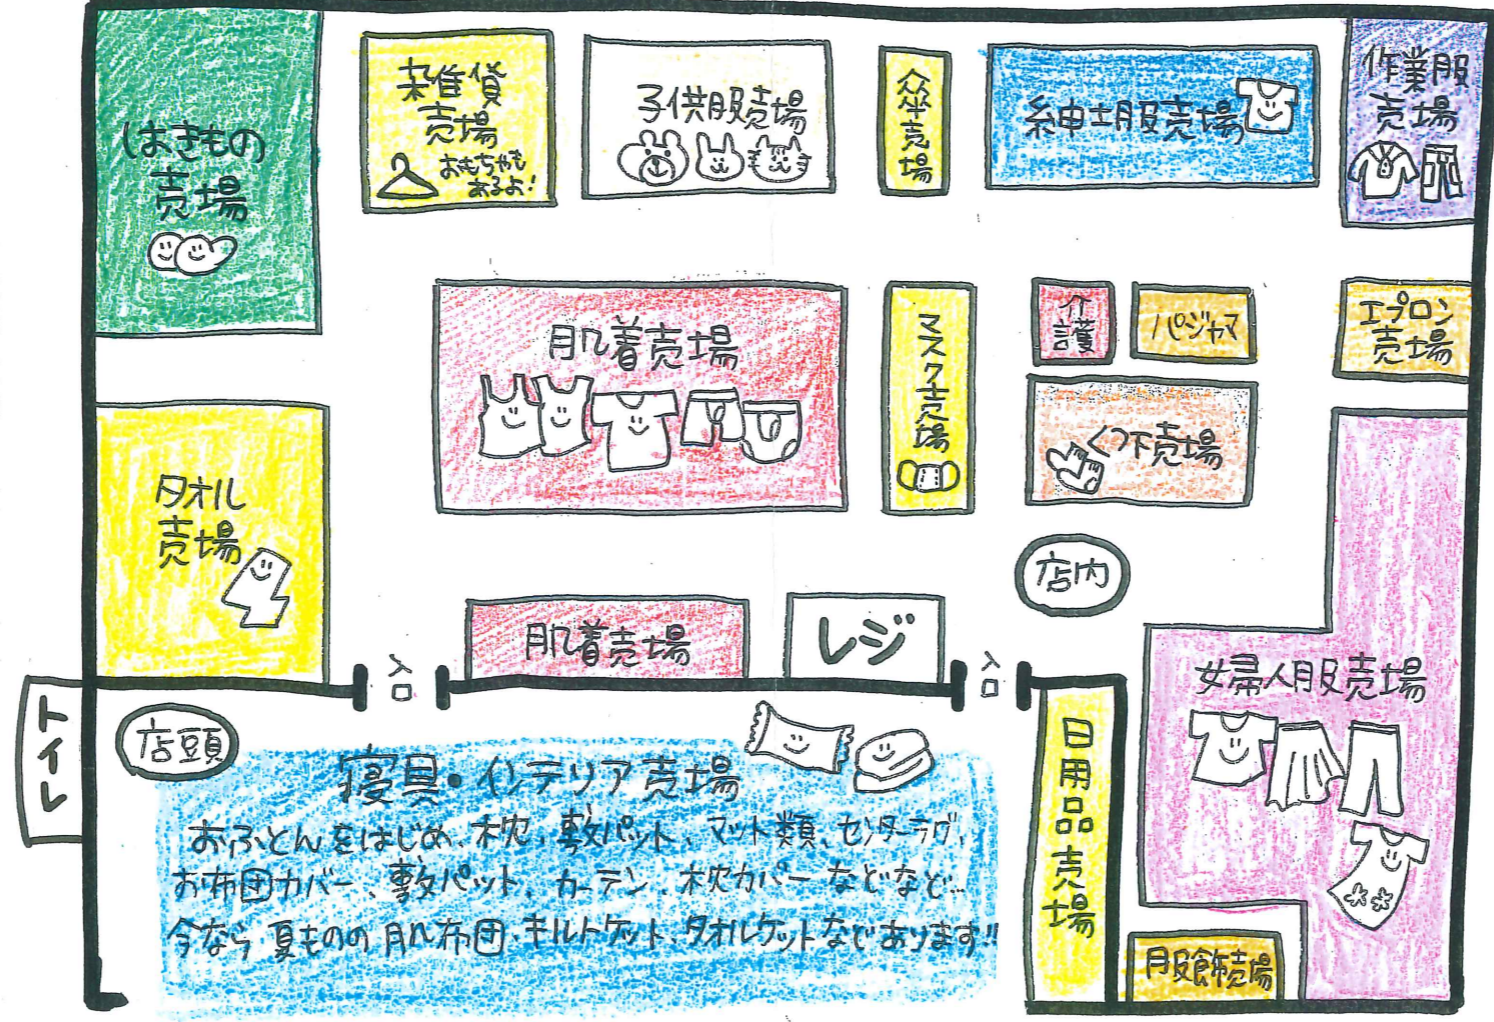 はきもの
売場
雑貨
売場
おもちゃも
あるよ!
子供服売場
傘売場
紳士服売場
作業服
売場
肌着売場
マスク売場
介護
パジャマ
エプロン
売場
くつ下売場
タオル
売場
店内
肌着売場
レジ
入口
入口
トイレ
店頭
寝具・インテリア売場
おふとんをはじめ、枕、敷パット、マット類、センターラグ、
お布団カバー、敷パット、カーテン、枕カバーなどなど…
今なら夏ものの肌布団、キルトケット、タオルケットなどあります!!
日用品売場
婦人服売場
服飾売場